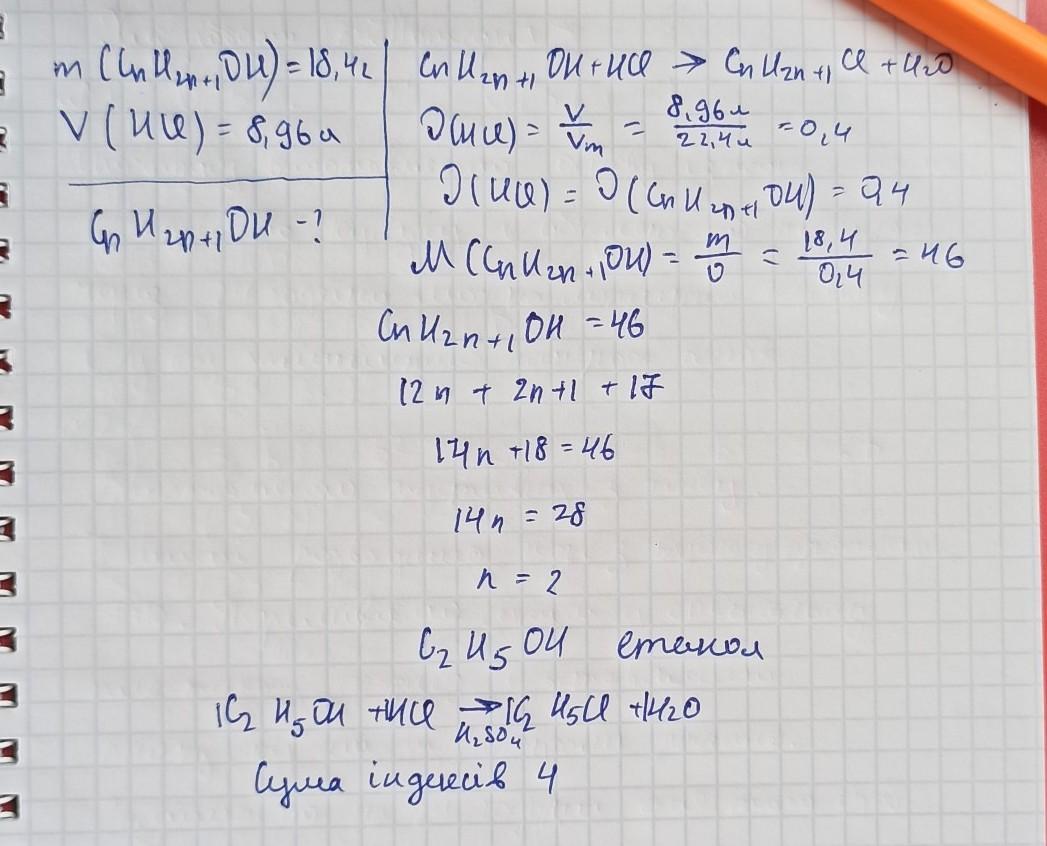 m (CnH2n+1OH) = 18,4г
V (HCl) = 8,96л
CnH2n+1OH - ?
CnH2n+1OH + HCl → CnH2n+1Cl + H2O
υ(HCl) = V/Vm = 8,96л/22,4л = 0,4
υ(HCl) = υ(CnH2n+1OH) = 0,4
M (CnH2n+1OH) = m/υ = 18,4/0,4 = 46
CnH2n+1OH = 46
12n + 2n+1 + 17
14n + 18 = 46
14n = 28
n = 2
C2H5OH етанол
1C2H5OH + 1HCl → 1C2H5Cl + 1H2O
H2SO4
Сума індексів 4